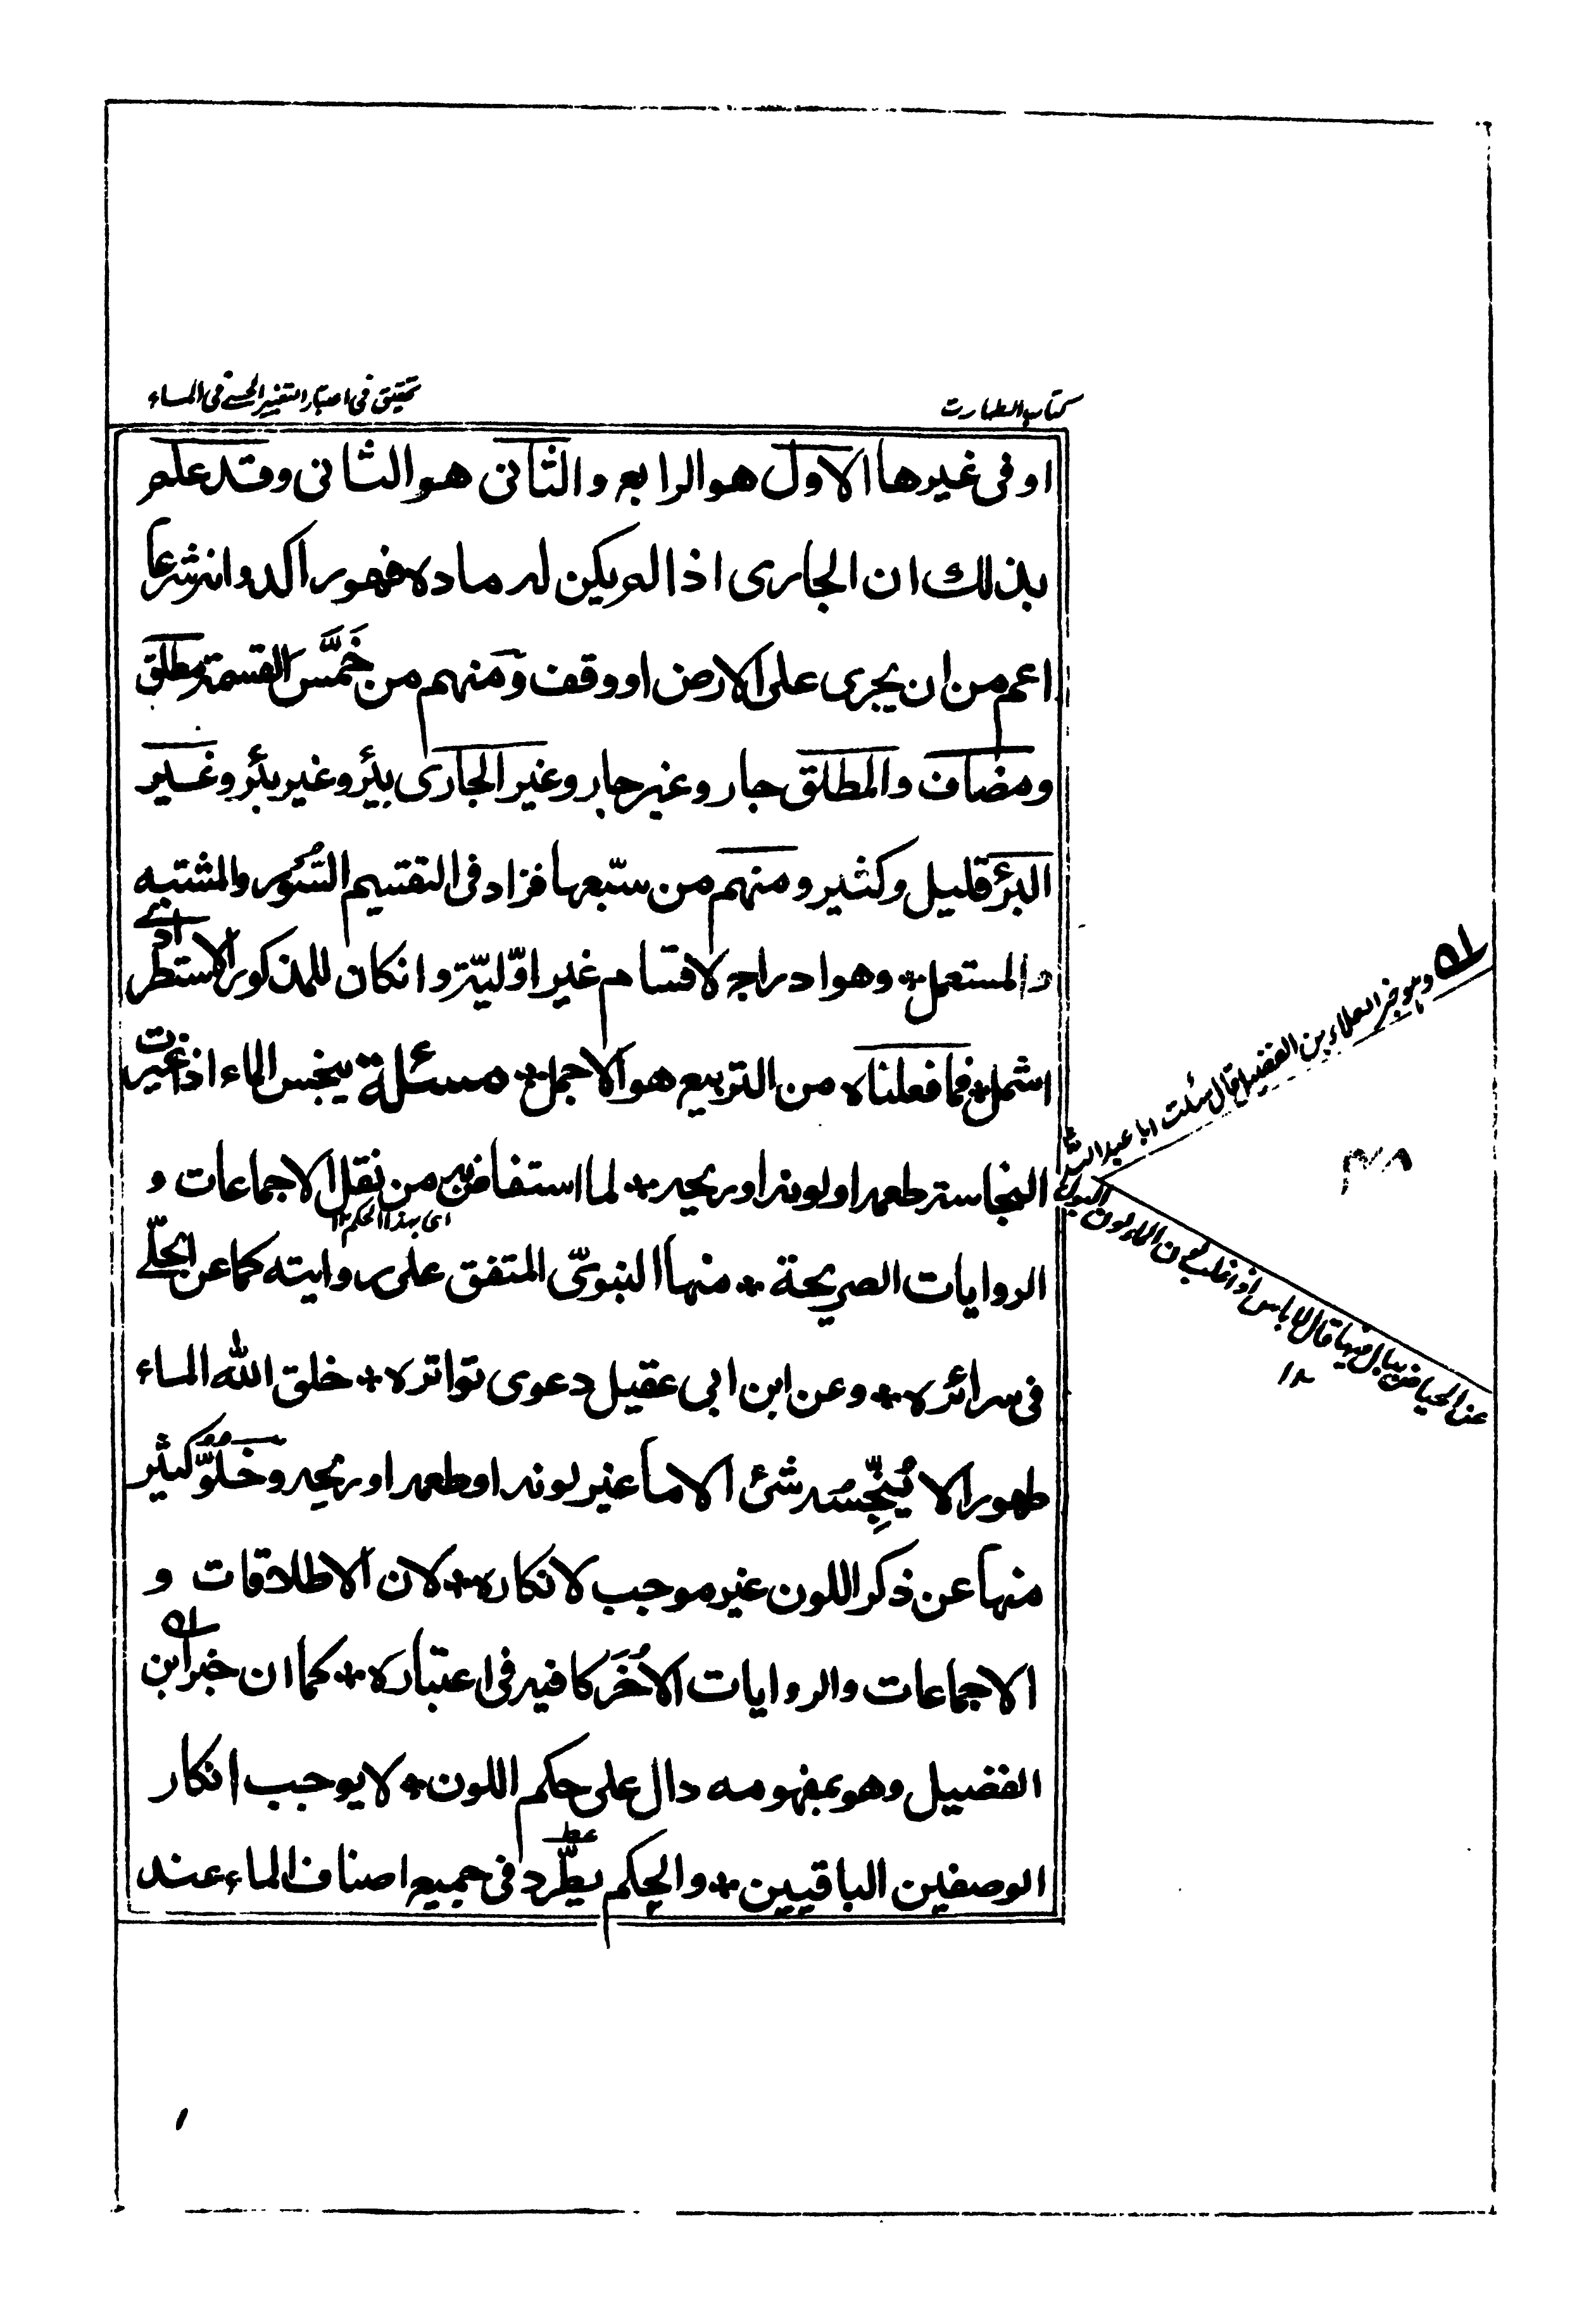 كتاب الطهارت
تحقيق في اعتبار التغيير الحسي في الماء
او في غيرها الاول هو الرابع والثاني هو الثاني وقد علم
بذلك ان الجاري اذا لم يكن له مادة فهو راكد وانه شرعا
اعم من ان يجري على الارض او وقف ومنهم من خَمَّسَ القسمة مطلق
ومضاف والمطلق جار وغير جار وغير الجاري بئر وغير بئر وغير
البئر قليل وكثير ومنهم من سبّعها فزاد في التقسيم السُّؤر والمشتبه
والمستعمل * وهو ادراج لاقسام غير اوّليّة وانكان للمذكور الاستطرادي
اشمل * فما فعلناه من التربيع هو الاجمل * مسئلة ينجس الماء اذا غيرت
النجاسة طعمه او لونه او ريحه * لما استفاض به من نقل الاجماعات و
اى بهذا الحكم ١٢
الروايات الصريحة * منها النبويّ المتفق على روايته كما عن الحلّي
في سرائره * وعن ابن ابي عقيل دعوى تواتره * خلق الله الماء
طهورا لا يُنَجِّسُه شئ الا ما غير لونه او طعمه او ريحه وخلوّ كثير
منها عن ذكر اللون غير موجب لانكاره * لان الاطلاقات و
الاجماعات والروايات الاُخَر كافية في اعتباره * كما ان خبر ابن
الفضيل وهو بمفهومه دال على حكم اللون * لا يوجب انكار
الوصفين الباقيين * والحكم يطّرد في جميع اصناف الماء عند
وهو خبر العلاء بن الفضيل قال سئلت ابا عبد الله
عن الحياض يبال فيها قال لا باس اذا غلب لون الماء لون البول
١٢